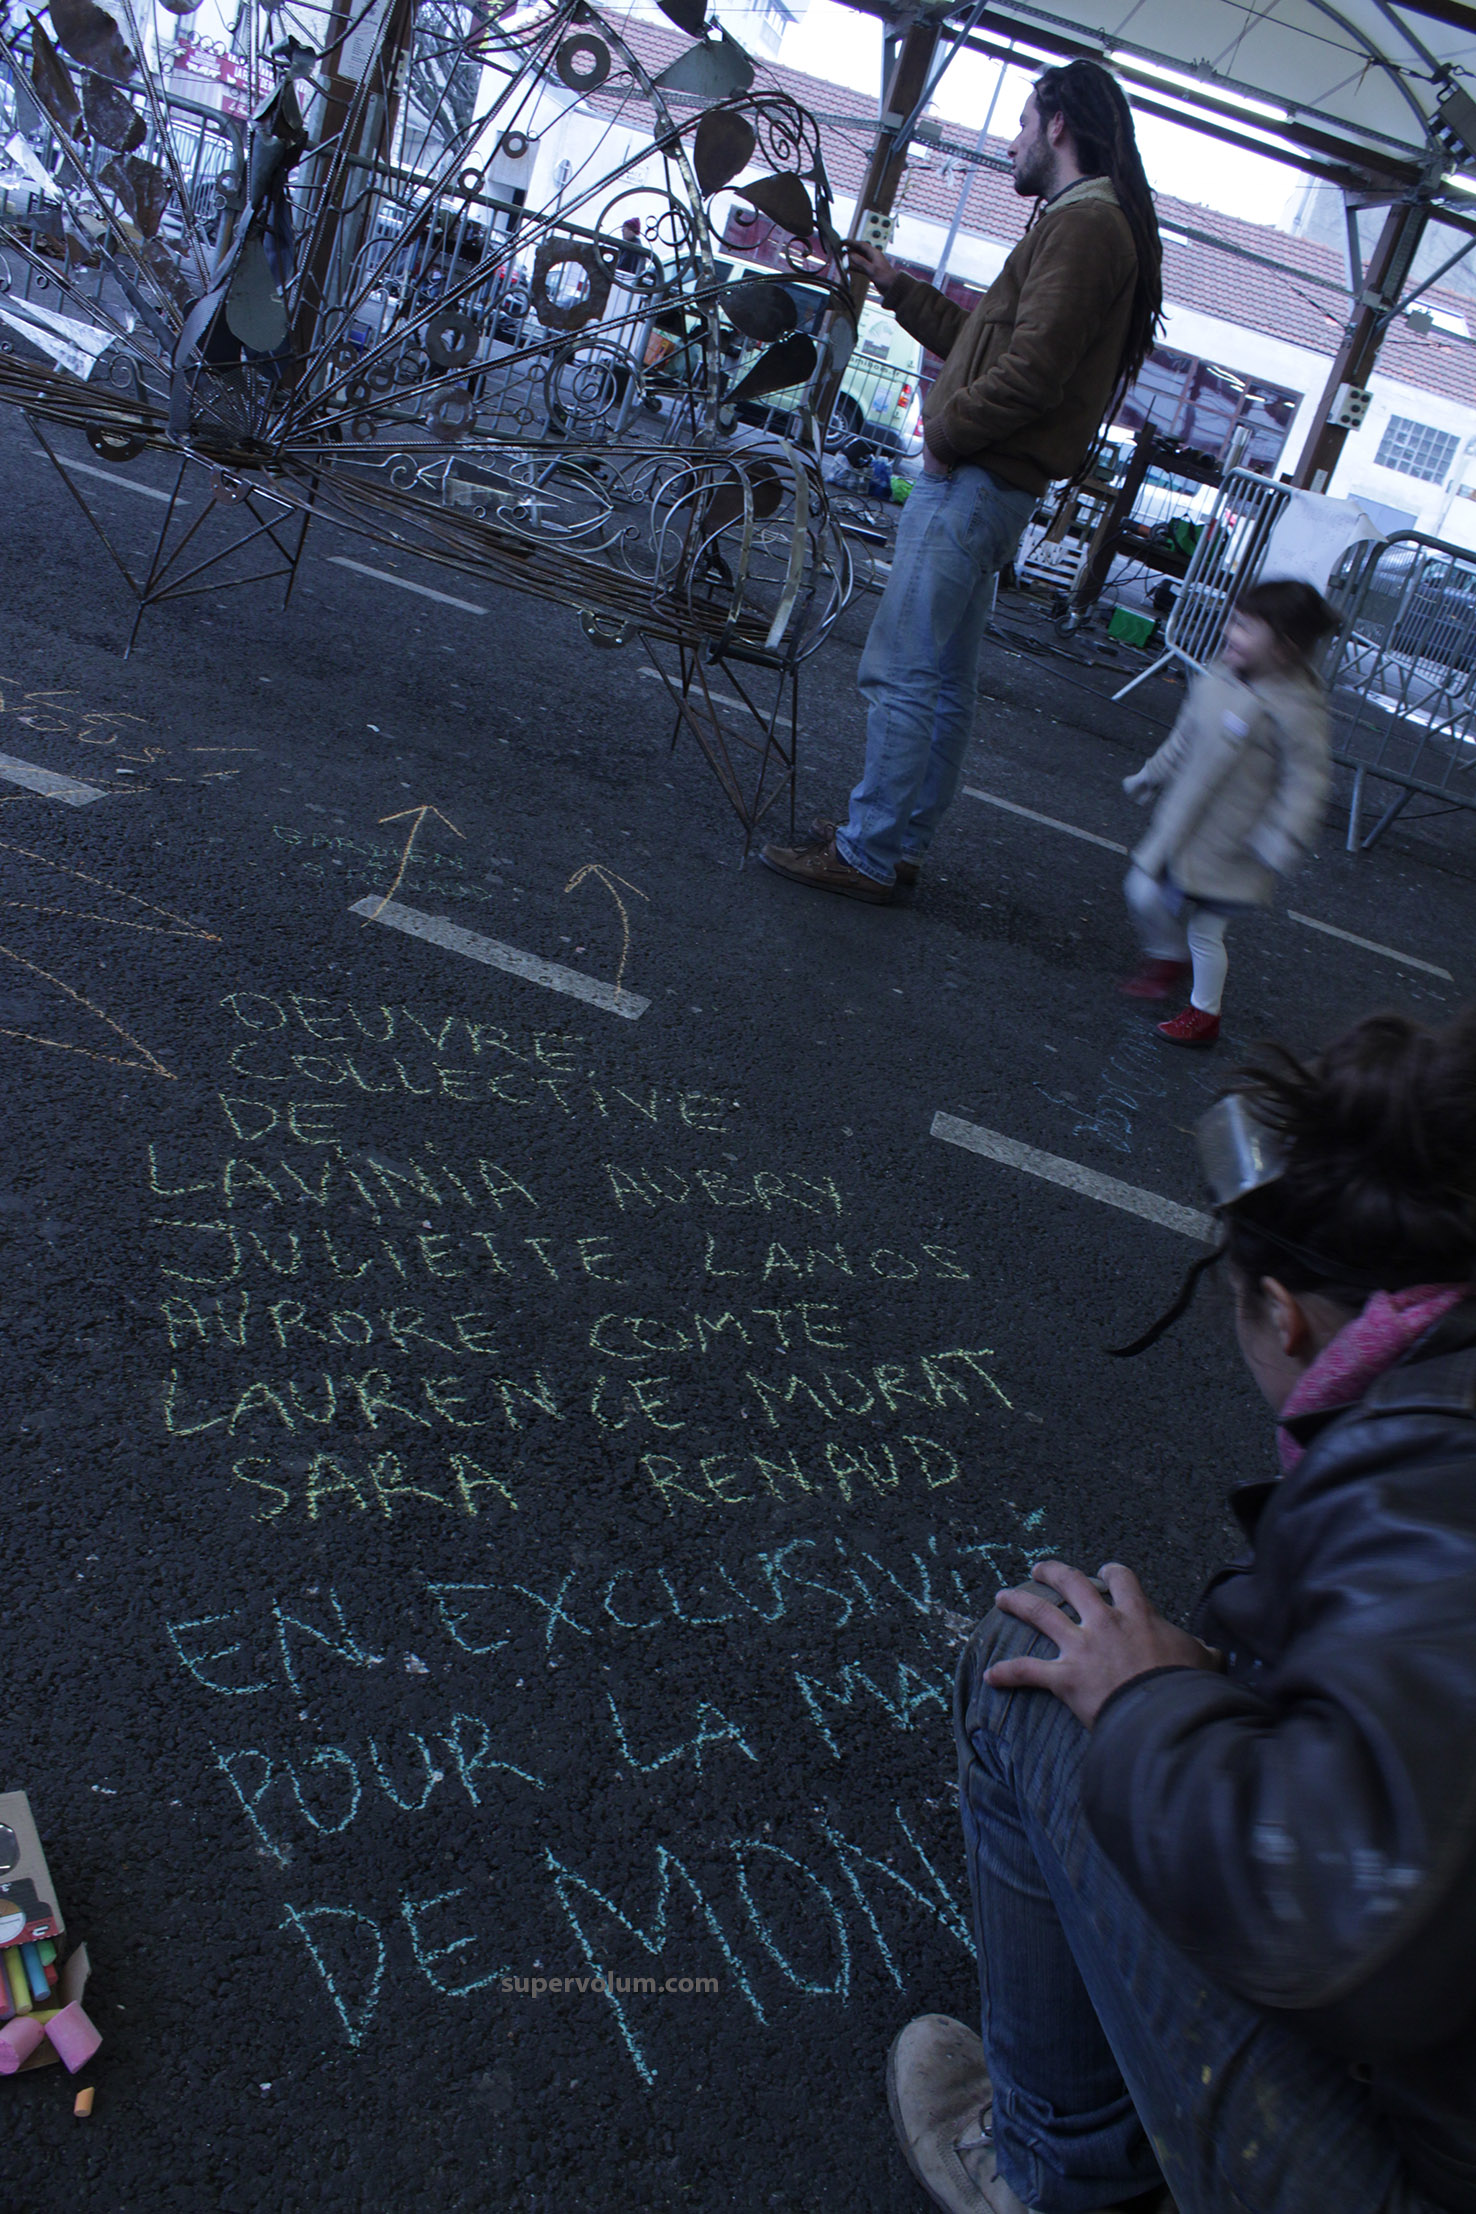 OEUVRE
COLLECTIVE
DE
LAVINIA AUBRY
JULIETTE LANOS
AURORE COMTE
LAURENCE MURAT
SARA RENAUD
EN EXCLUSIVITÉ
POUR LA MA
DE MON
supervolum.com